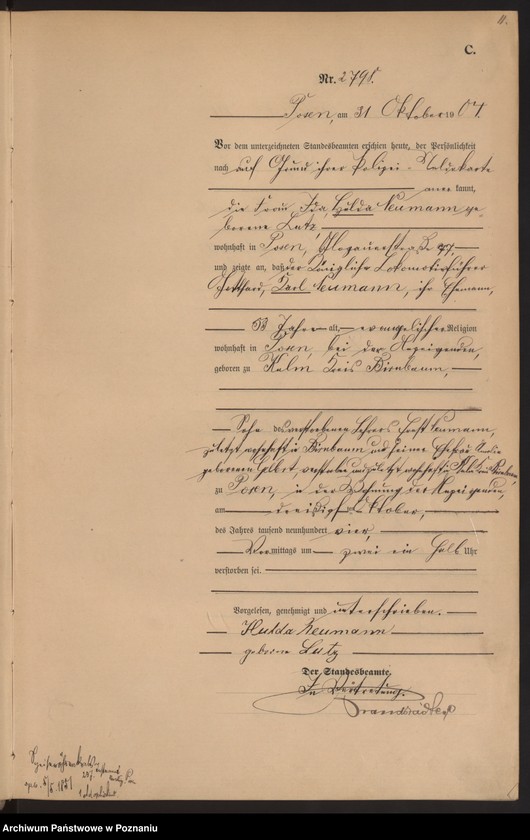 11.
C.
Nr. 2798.
Posen, am 31 Oktober 1904.
Vor dem unterzeichneten Standesbeamten erschien heute, der Persönlichkeit
nach auf Grund ihrer Polizei-Meldekarte
aner kannt,
die Frau Ida, Hulda Neumann ge-
borene Lutz,
wohnhaft in Posen, Glogauerstraße
und zeigte an, daß der Königliche Lokomotivführer
Gotthard, Karl Neumann, ihr Ehemann,
Jahre alt, evangelischer Religion
wohnhaft in Posen, bei der Anzeigenden,
geboren zu Kulm Kreis Birnbaum,
Sohn des verstorbenen Lehrers Ernst Neumann,
zuletzt wohnhaft in Birnbaum und seiner Ehefrau
geborenen verstorben und zuletzt wohnhaft in
zu Posen, in der Wohnung der Anzeigenden,
am dreißigsten Oktober,
des Jahres tausend neunhundert vier,
Vormittags um zwei ein halb Uhr
verstorben sei.
Vorgelesen, genehmigt und unterschrieben.
Hulda Neumann
geborene Lutz
Der Standesbeamte.
In Vertretung.
Archiwum Państwowe w Poznaniu